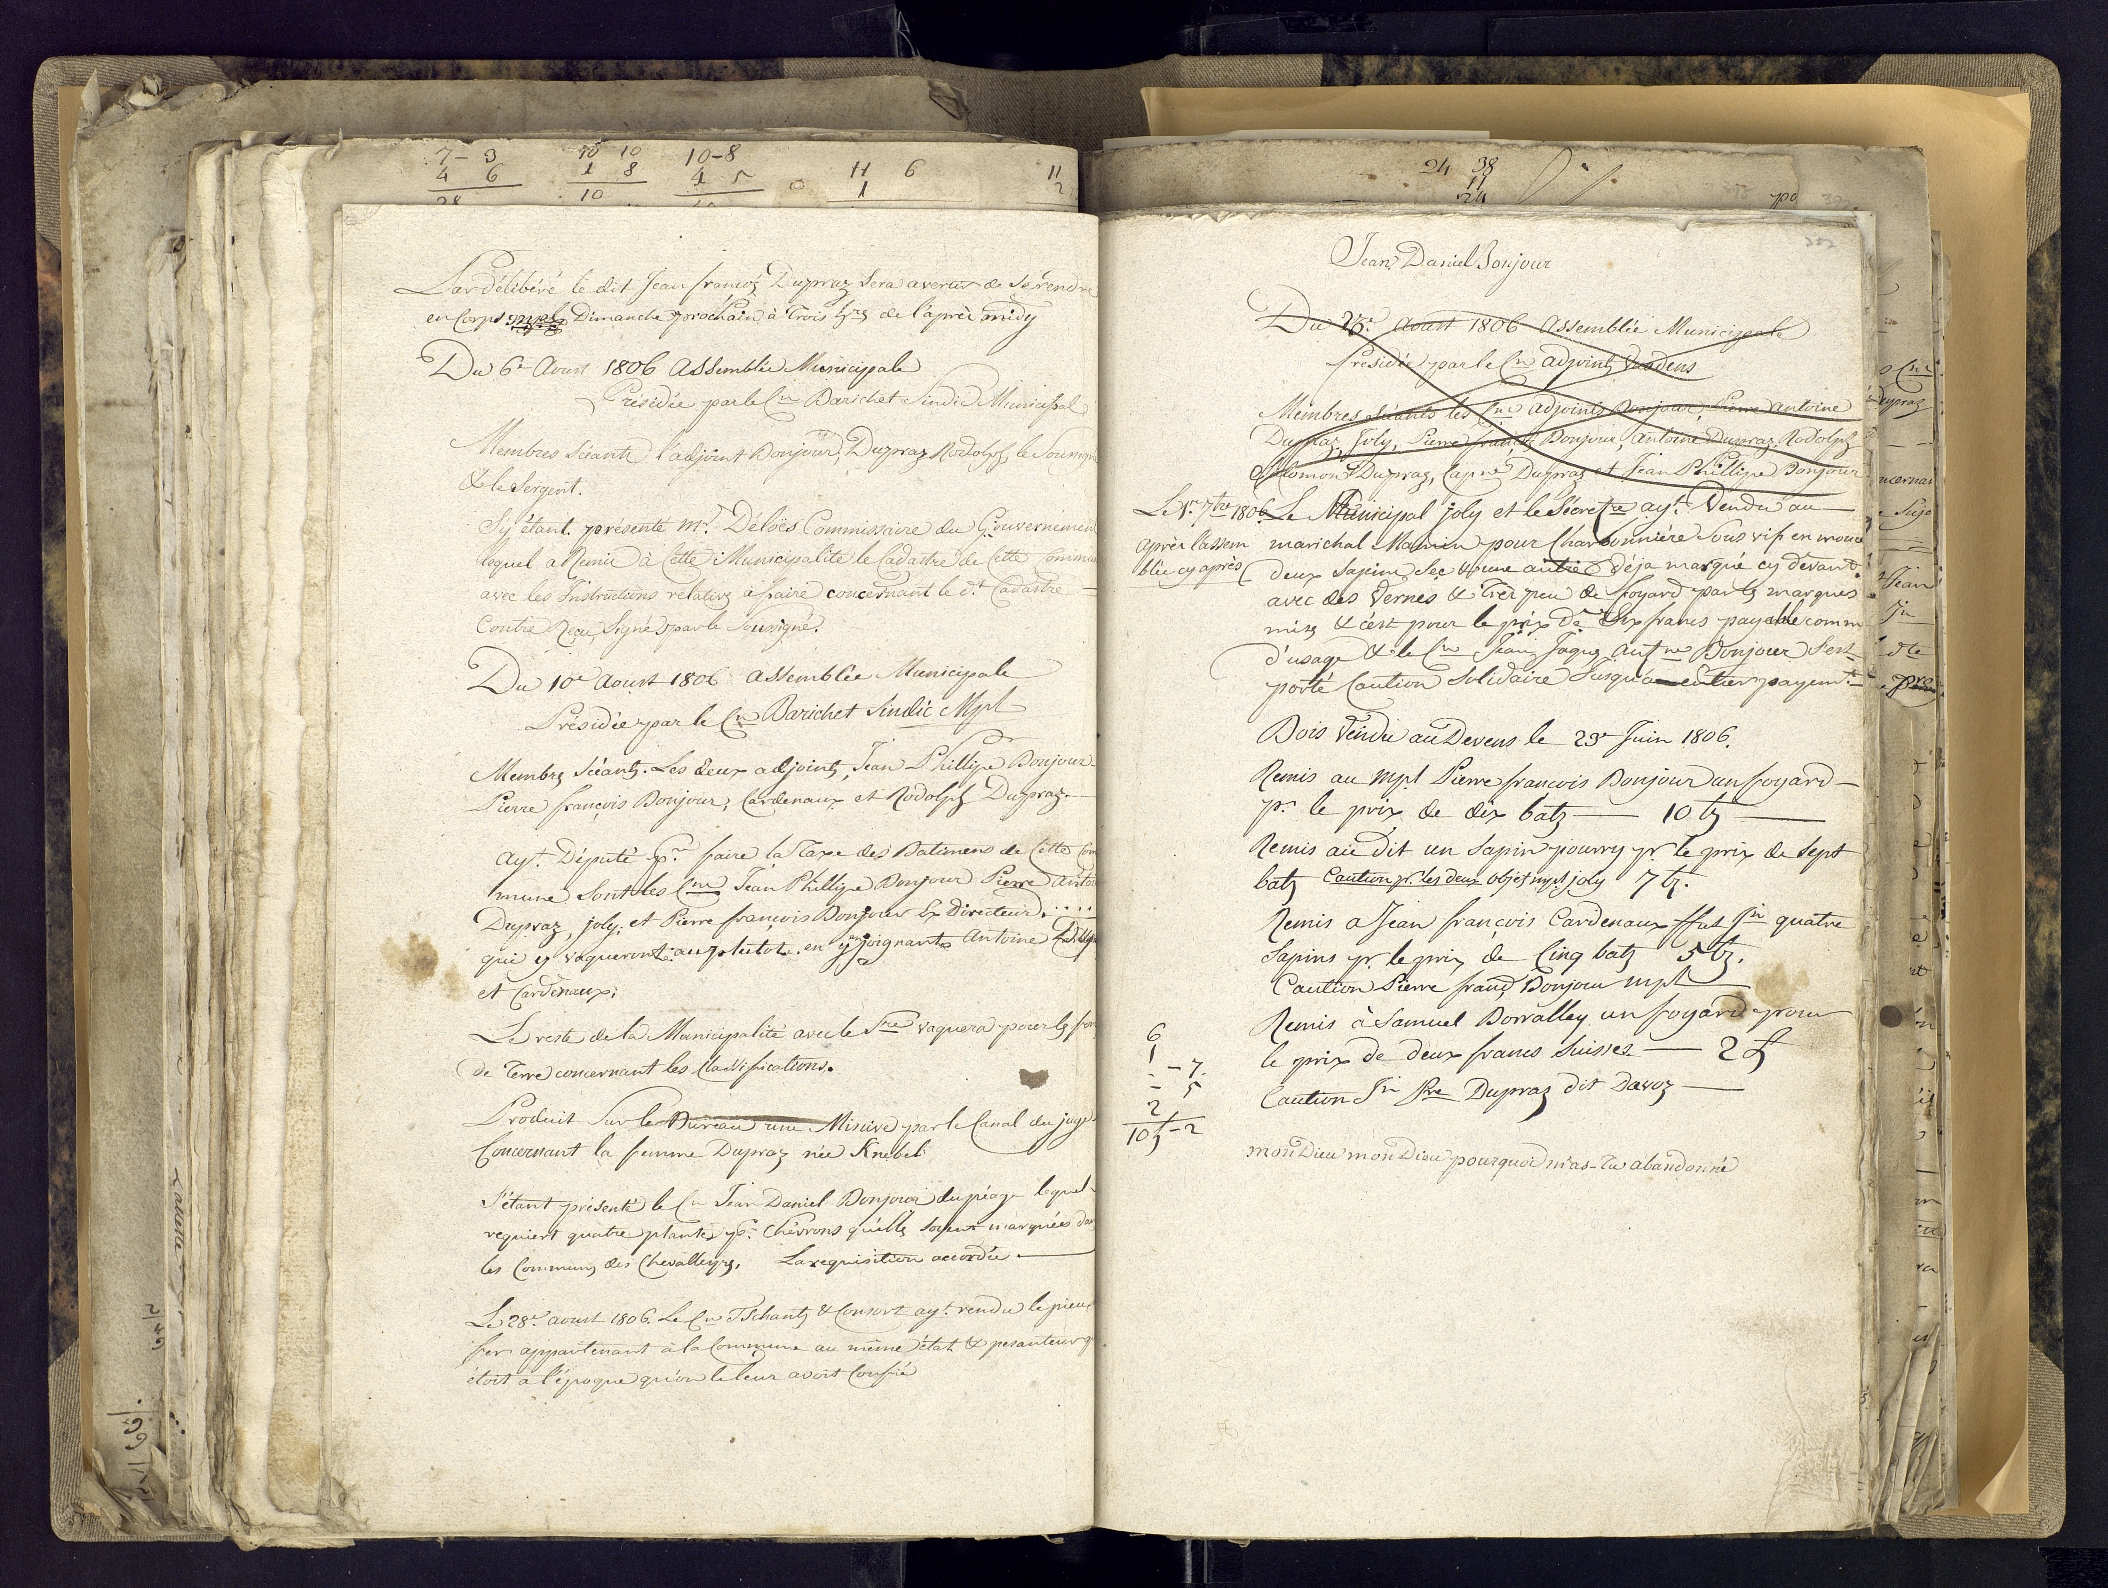 7 - 3
4 6
28
10 10
1 8
10
10-8
4 5
0
11 6
1
11
2
Par délibéré le dit Jean francoȝ Dupraz sera averti de se rendre
en Corps Dimanche prochain à Trois hrȝ de l'après midy
Du 6e Aoust 1806 Assemblée Municipale
Présidée par le Cn Barichet Sindic Municipal
Membres Séants l'adjoint Bonjour, Dupraz Rodolph, le Soussigné
& le Sergent.
S'y étant présenté Mr. Déloës Commissaire du Gouvernement
lequel a Remis à Cette Municipalité le Cadastre de Cette Commu
avec les Instructions relatives à faire concernant le dt. Cadastre
Contre Reçu Signé par le Soussigné.
Du 10e Aoust 1806 Assemblée Municipale
Présidée par le Cn Barichet Sindic Mpl
Membrȝ Séantȝ. Les deux adjointȝ, Jean Phillipe Bonjour
Pierre françois Bonjour, Cardenaux et Rodolph Dupraz.
Ayt. Député pr. faire la Taxe des Batimens de Cette Com
mune Sont les Cns Jean Phillipe Bonjour Pierre Antoi
Dupraz, joly, et Pierre françois Bonjour Ex Directeur.....
qui y vaqueront au plutot. en y joignants Antoine Dup
et Cardenaux;
Le reste de la Municipalité avec le Sre vaquera pour lȝ fon
de Terre concernant les Classifications.
Produit Sur le Bureau une Missive par le Canal du juge
Concernant la femme Dupraz née Knebel
S'étant présenté le Cn Jean Daniel Bonjour du péage lequel
requiert quatre plantes pr. Chévrons qu'ellȝ soyent marquées da
les Communȝ des Chevalleyrȝ. La requisition accordée
Le 28e. aoust 1806. Le Cn Tschantȝ & Consort ayt. rendu le pieu
fer appartenant à la Commune au même état & pesanteur q
étoit à l'époque qu'on le leur avoit Confié
24 38
11
24
po
202
Jean Daniel Bonjour
Du 28e. Aoust 1806 Assemblée Municipale
Présidée par le Cn adjoint
Membres Séants les Cns Adjoints Bonjour, Pierre Antoine
Dupraz, Joly, Pierre franȝ Bonjour, Antoine Dupraz, Rodolph
Salomon Dupraz, Capne Dupraz et Jean Phillipe Bonjour
Le 1r. 7bre 1806
après l'assem
blée cy après
Le Municipal joly et le Sécretre ayt. Vendu au
marichal Mamin pour Charbonnière Sous vif en
deux Sapins Sec & une autre déja marqué cy devant
avec des Vernes & Très peu de foyard par lȝ marques
misȝ & c'est pour le prix de Six francs payable comm
d'usage & le Cn Jean Jaquȝ Antne Bonjour s'est
porté Caution Solidaire Jusqu'a entier payemt.
Bois Vendu au Devens le 23e Juin 1806.
Remis au Mpl Pierre francois Bonjour un foyard
pr. le prix de dix batȝ — 10 bȝ
Remis au dit un Sapin pourry pr le prix de Sept
batȝ Caution pr. les deux objet mpl joly 7 bȝ.
Remis a Jean françois Cardenaux ffut Jn quatre
Sapins pr. le prix de Cinq batȝ 5 bȝ.
Caution Pierre franȝ Bonjour mpl
Remis à Samuel Dovalley un foyard pour
le prix de deux francs Suisses — 2 f
Caution Jn Pre Dupraz dit Davoȝ
6
1
- - 7.
- 5
2
10 f - 2
mon Dieu mon Dieu pourquoi m'as-Tu abandonné